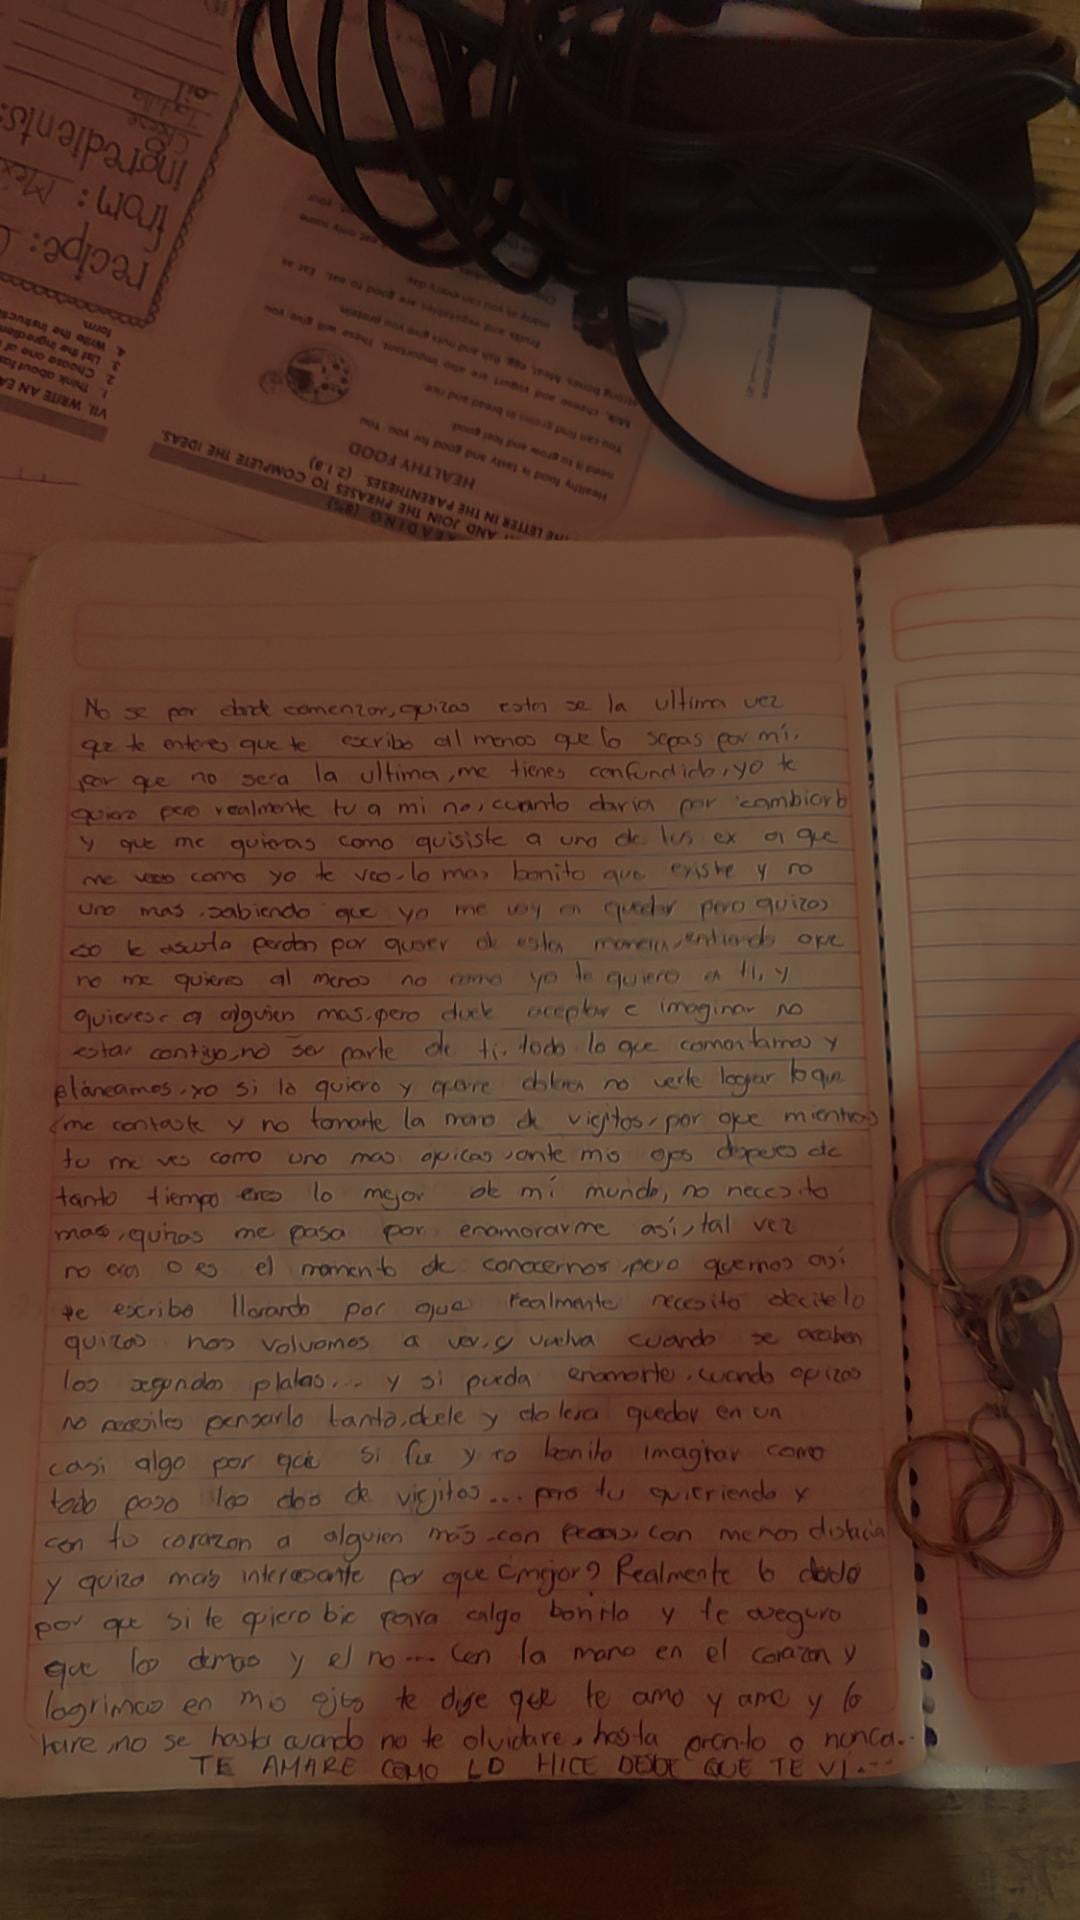 recipe:
from: Mex
ingredients:
oil
VII. WRITE AN EA
1. Think about
2. Choose one of
3. List the ingredien
4. Write the instruc
form
READING (8%)
AND JOIN THE PHRASES TO COMPLETE THE IDEAS.
THE LETTER IN THE PARENTHESES. (2.1.8)
HEALTHY FOOD
Healthy food is tasty and good for you. You
need it to grow and feel good.
You can find grains in bread and rice
Milk, cheese and yogurt are also important. These will give you
strong bones. Meat, egg, fish and nuts give you protein
Fruits and vegetables are good to eat. Eat as
many as you can every day
No se por donde comenzar, quizas esta se la ultima vez
que te enteres que te escribo al menos que lo sepas por mí.
por que no sera la ultima, me tienes confundido, yo te
quiero pero realmente tu a mi no, cuanto daria por cambiarlo
y que me quieras como quisiste a uno de tus ex a que
me veas como yo te veo. lo mas bonito que existe y no
uno mas. sabiendo que yo me voy a quedar pero quizas
eso te asusta perdon por querer de esta manera, entiendo que
no me quieres al menos no como yo te quiero a ti, y
quieres a alguien mas. pero duele aceptar e imaginar no
estar contigo, no ser parte de ti. todo lo que comentamos y
planeamos. yo si lo quiero y querre dolera no verte lograr lo que
me contaste y no tomarte la mano de viejitos, por que mientras
tu me ves como uno mas quizas, ante mis ojos despues de
tanto tiempo eres lo mejor de mi mundo, no necesito
mas, quizas me pasa por enamorarme así, tal vez
no era o es el momento de conocernos, pero querernos así
te escribo llorando por que realmente necesito decirtelo
quizas nos volvamos a ver, y vuelva cuando se acaben
los segundos platos... y si pueda enamorarte. cuando quizas
no necesites pensarlo tanto, duele y dolera quedar en un
casi algo por que si fue y es bonito imaginar como
todo paso los dos de viejitos... pero tu queriendo y
con tu corazon a alguien más. con menos distacia
y quiza mas interesante por que ¿mejor? Realmente lo dudo
por que si te quiero bie para algo bonito y te aseguro
que los demas y el no... con la mano en el corazon y
lagrimas en mis ojos te dije que te amo y ame y lo
hare, no se hasta cuando no te olvidare, hasta pronto o nunca..
TE AMARE COMO LO HICE DESDE QUE TE VÍ....